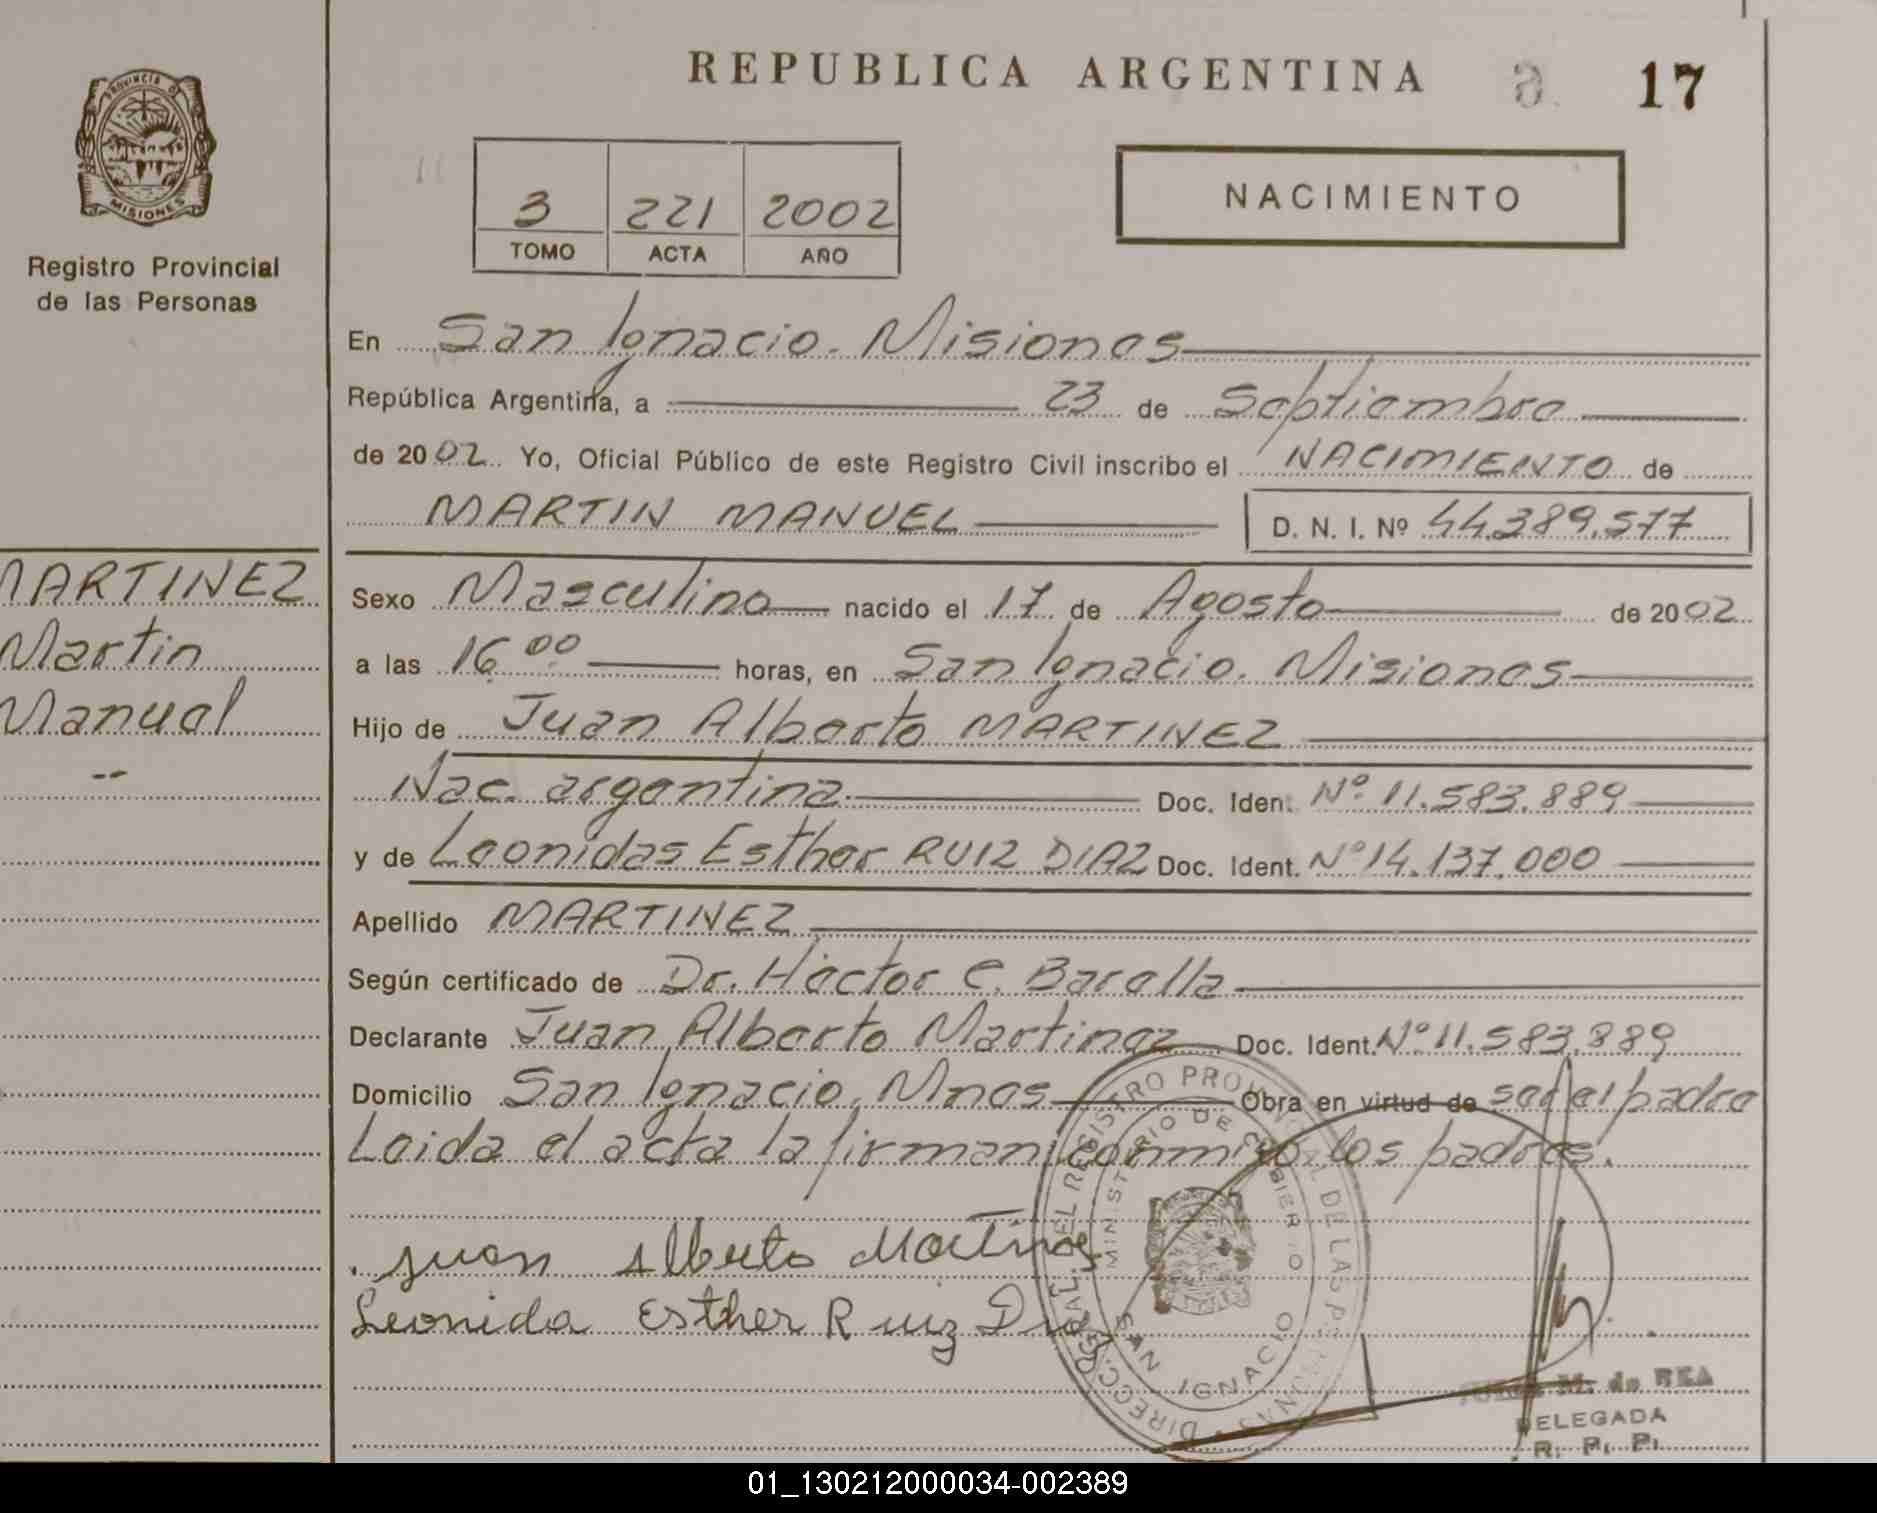 REPUBLICA ARGENTINA 17
PROVINCIA D
MISIONES
Registro Provincial
de las Personas
3 221 2002
TOMO ACTA AÑO
NACIMIENTO
En San Ignacio. Misiones
República Argentina, a 23 de Septiembre
de 2002 Yo, Oficial Público de este Registro Civil inscribo el NACIMIENTO de
MARTIN MANUEL D. N. I. Nº 44.389.577
MARTINEZ
Martin
Manuel
--
Sexo Masculino nacido el 17 de Agosto de 2002
a las 16.00 horas, en San Ignacio. Misiones
Hijo de Juan Alberto MARTINEZ
Nac. argentina Doc. Ident. Nº 11.583.889
y de Leonidas Esther RUIZ DIAZ Doc. Ident. Nº 14.137.000
Apellido MARTINEZ
Según certificado de Dr. Héctor C. Barella
Declarante Juan Alberto Martinez Doc. Ident. Nº 11.583.889
Domicilio San Ignacio, Mnes Obra en virtud de ser el padre
Leida el acta la firman conmigo los padres.
Juan Alberto Martinez
Leonida Esther Ruiz Diaz
MINISTERIO DE GOBIERNO
SAN IGNACIO
M. de REA
DELEGADA
R. P. P.
01_130212000034-002389